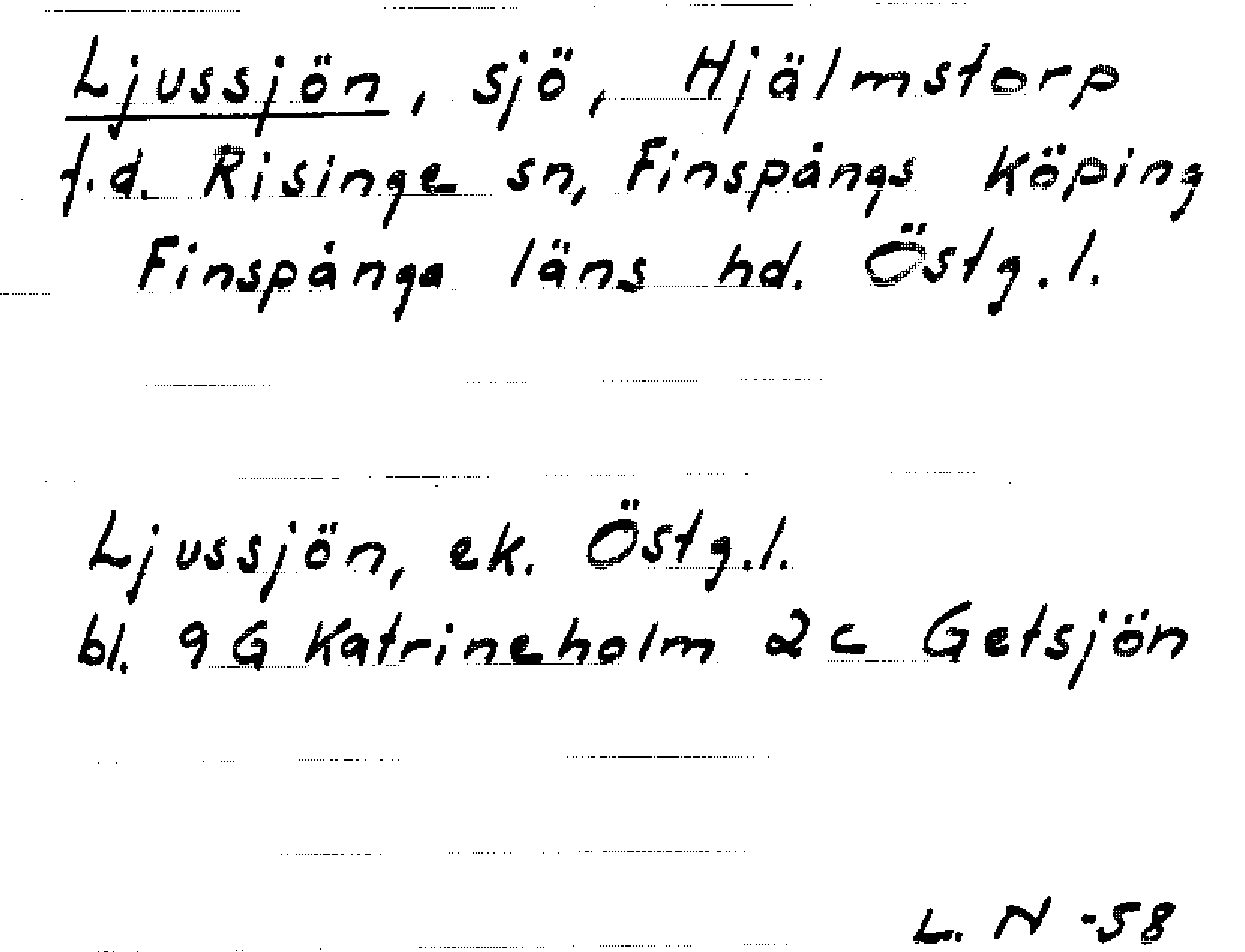 Ljussjön, sjö, Hjälmstorp
f.d. Risinge sn, Finspångs Köping
Finspånga läns hd. Östg.l.
Ljussjön, ek. Östg.l.
bl. 9G Katrineholm 2c Getsjön
L. N -58